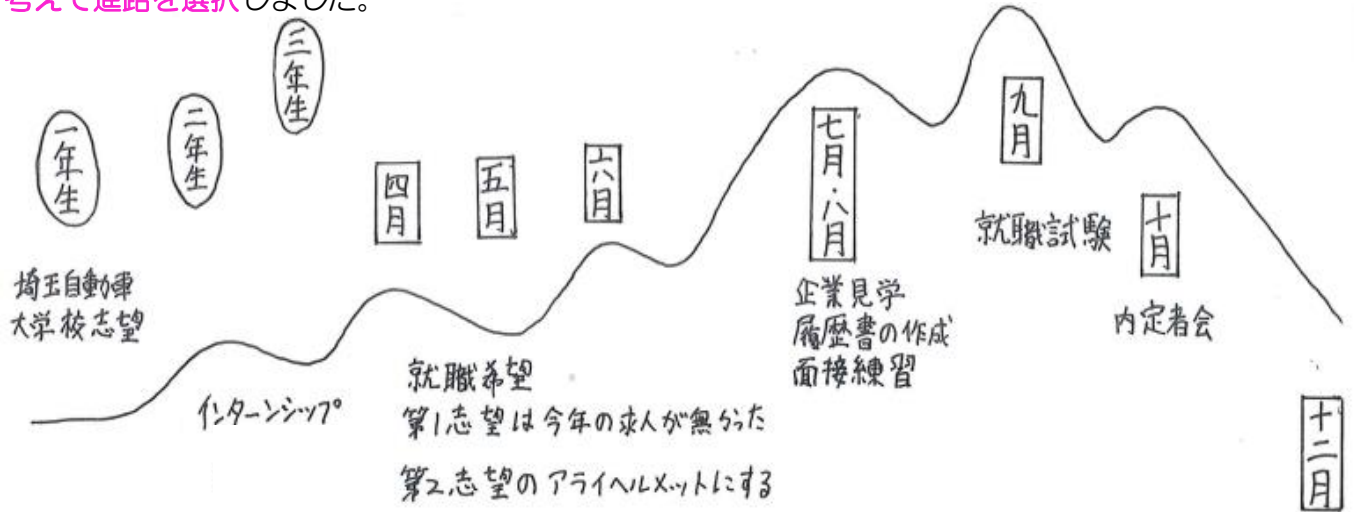 考えて進路を選択しました。
一年生
二年生
三年生
四月
五月
六月
七月・八月
九月
十月
十二月
埼玉自動車
大学校志望
インターンシップ
就職希望
第1志望は今年の求人が無かった
第2志望のアライヘルメットにする
企業見学
履歴書の作成
面接練習
就職試験
内定者会